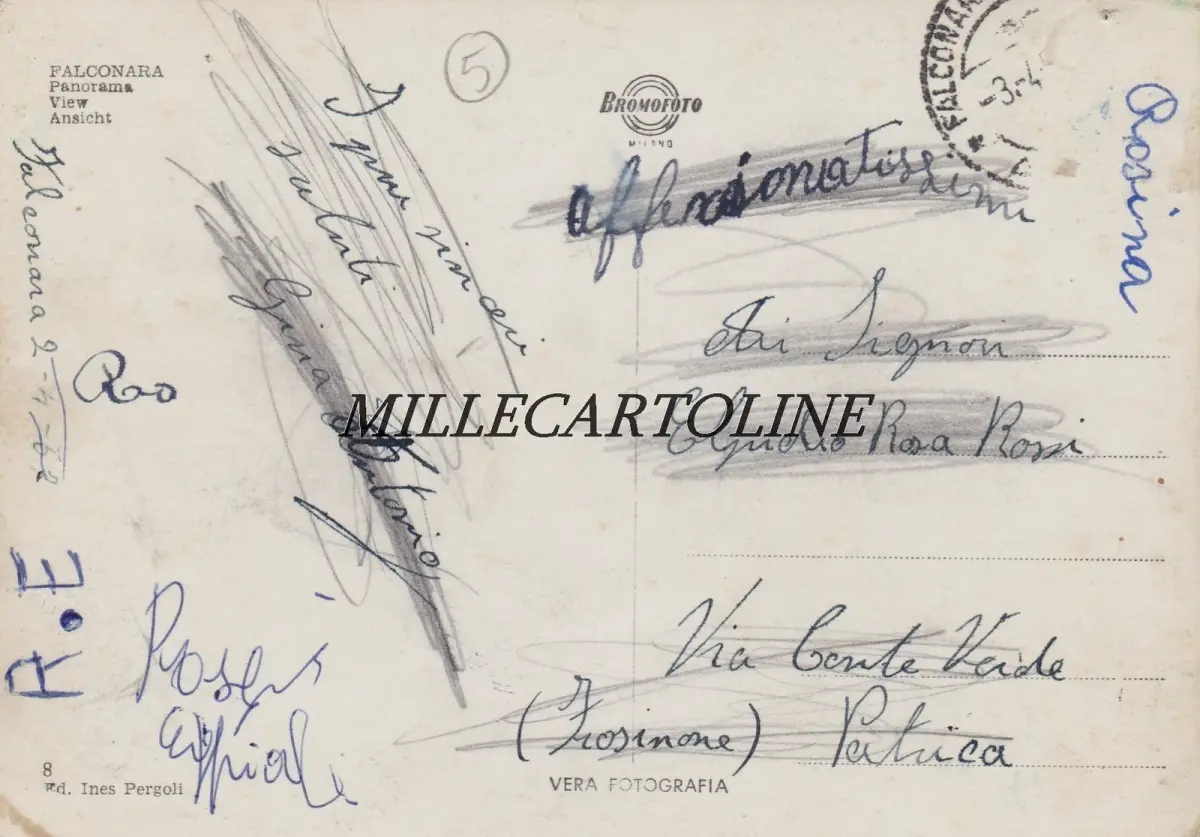 FALCONARA
Panorama
View
Ansicht
Falconara 2-4-62
5
I più sinceri
saluti
Gina e Antonio
BROMOFOTO
MILANO
FALCONARA
-3.-4
Rosina
affezionatissimi
Ai Signori
Rosa Rossi
Via Conte Verde
(Frosinone) Patrica
MILLECARTOLINE
Ro
R.E
8
Ed. Ines Pergoli
VERA FOTOGRAFIA